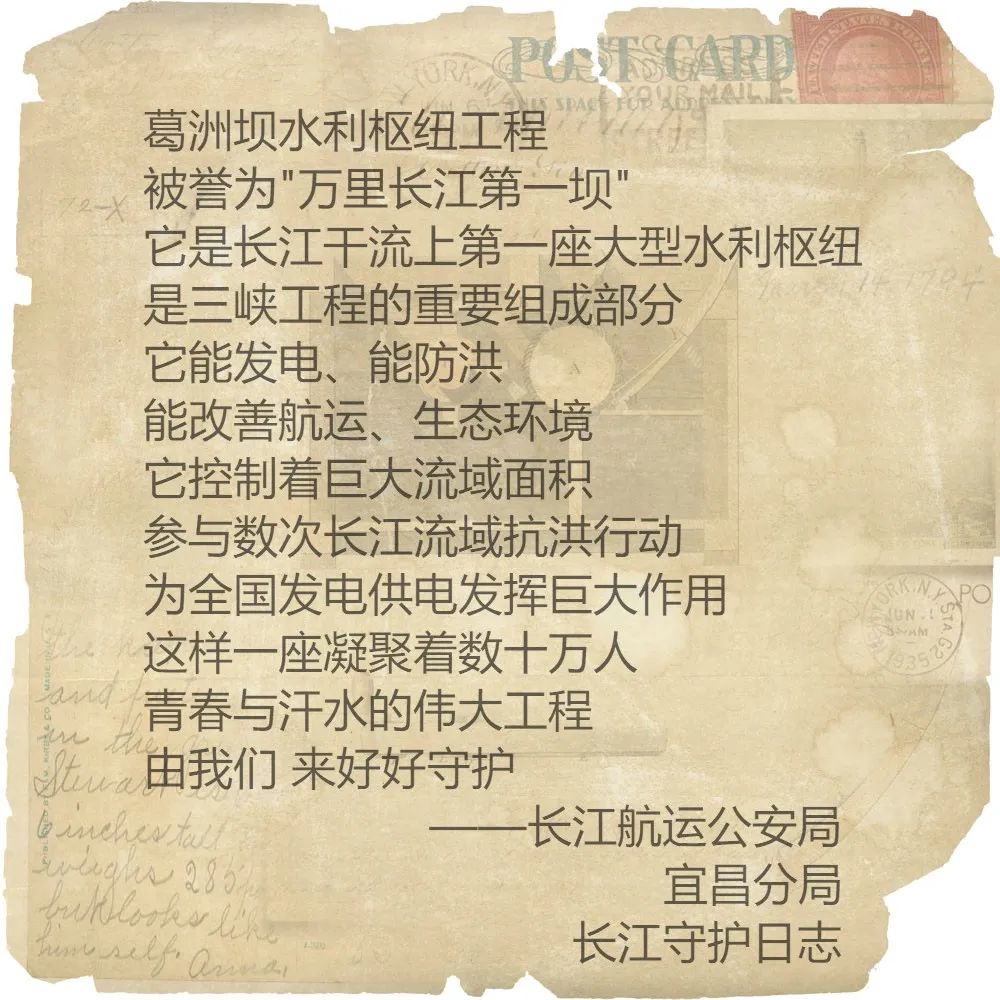 POST CARD
YOUR MAIL
THIS SPACE FOR ADDRESS ONLY
葛洲坝水利枢纽工程
被誉为"万里长江第一坝"
它是长江干流上第一座大型水利枢纽
是三峡工程的重要组成部分
它能发电、能防洪
能改善航运、生态环境
它控制着巨大流域面积
参与数次长江流域抗洪行动
为全国发电供电发挥巨大作用
这样一座凝聚着数十万人
青春与汗水的伟大工程
由我们 来好好守护
——长江航运公安局
宜昌分局
长江守护日志
PO
YORK, N.Y. STA
JUN
1935
in the
Stewart is
6 inches tall
weighs 285
but looks like
himself.
Anna,